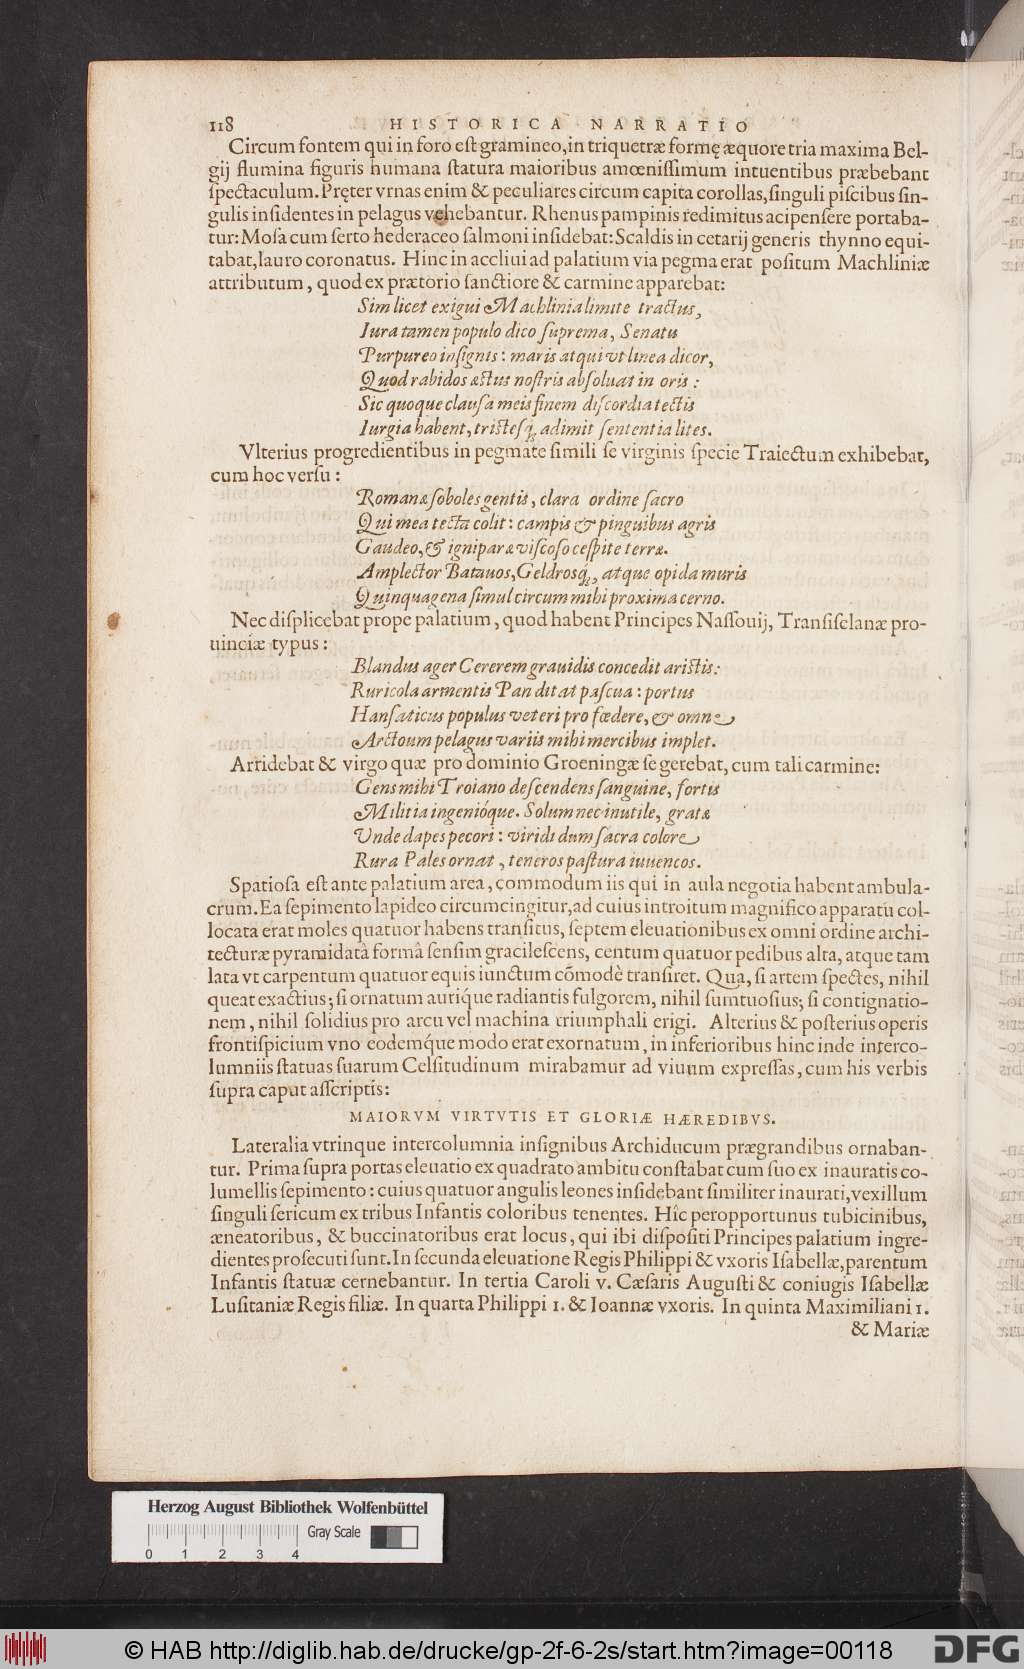 118 HISTORICA NARRATIO
Circum fontem qui in foro eſt gramineo, in triquetræ formę æquore tria maxima Bel-
gij flumina figuris humana ſtatura maioribus amœniſſimum intuentibus præbebant
ſpectaculum. Pręter vrnas enim & peculiares circum capita corollas, ſinguli piſcibus ſin-
gulis inſidentes in pelagus vehebantur. Rhenus pampinis redimitus acipenſere portaba-
tur: Moſa cum ſerto hederaceo ſalmoni inſidebat: Scaldis in cetarij generis thynno equi-
tabat, lauro coronatus. Hinc in accliui ad palatium via pegma erat poſitum Machliniæ
attributum, quod ex prætorio ſanctiore & carmine apparebat:
Sim licet exigui Machlinia limite tractus,
Iura tamen populo dico ſuprema, Senatu
Purpureo inſignis: maris atqui vt linea dicor,
Quod rabidos æstus noſtris abſoluat in oris:
Sic quoque clauſa meis finem diſcordia tectis
Iurgia habent, triſteſq; adimit ſententia lites.
Vlterius progredientibus in pegmate ſimili ſe virginis ſpecie Traiectum exhibebat,
cum hoc verſu:
Romanæ ſoboles gentis, clara ordine ſacro
Qui mea tecta colit: campis & pinguibus agris
Gaudeo, & igniparæ viſcoſo ceſpite terræ.
Amplector Batauos, Geldrosq;, atque opida muris
Quinquagena ſimul circum mihi proxima cerno.
Nec diſplicebat prope palatium, quod habent Principes Naſſouij, Tranſiſelanæ pro-
uinciæ typus:
Blandus ager Cererem grauidis concedit ariſtis:
Ruricola armentis Pan ditat paſcua: portus
Hanſaticus populus veteri pro fœdere, & omne
Arctoum pelagus variis mihi mercibus implet.
Arridebat & virgo quæ pro dominio Groeningæ ſe gerebat, cum tali carmine:
Gens mihi Troiano deſcendens ſanguine, fortis
Militia ingenióque. Solum nec inutile, gratæ
Vnde dapes pecori: viridi dum ſacra colore
Rura Pales ornat, teneros paſtura iuuencos.
Spatioſa eſt ante palatium area, commodum iis qui in aula negotia habent ambula-
crum. Ea ſepimento lapideo circumcingitur, ad cuius introitum magnifico apparatu col-
locata erat moles quatuor habens tranſitus, ſeptem eleuationibus ex omni ordine archi-
tecturæ pyramidatâ formâ ſenſim gracileſcens, centum quatuor pedibus alta, atque tam
lata vt carpentum quatuor equis iunctum cōmodè tranſiret. Qua, ſi artem ſpectes, nihil
queat exactius; ſi ornatum auriq́ue radiantis fulgorem, nihil ſumtuoſius; ſi contignatio-
nem, nihil ſolidius pro arcu vel machina triumphali erigi. Alterius & poſterius operis
frontiſpicium vno eodemq́ue modo erat exornatum, in inferioribus hinc inde interco-
lumniis ſtatuas ſuarum Celſitudinum mirabamur ad viuum expreſſas, cum his verbis
ſupra caput aſſcriptis:
MAIORVM VIRTVTIS ET GLORIÆ HÆREDIBVS.
Lateralia vtrinque intercolumnia inſignibus Archiducum prægrandibus ornaban-
tur. Prima ſupra portas eleuatio ex quadrato ambitu conſtabat cum ſuo ex inauratis co-
lumellis ſepimento: cuius quatuor angulis leones inſidebant ſimiliter inaurati, vexillum
ſinguli ſericum ex tribus Infantis coloribus tenentes. Hîc peropportunus tubicinibus,
æneatoribus, & buccinatoribus erat locus, qui ibi diſpoſiti Principes palatium ingre-
dientes proſecuti ſunt. In ſecunda eleuatione Regis Philippi & vxoris Iſabellæ, parentum
Infantis ſtatuæ cernebantur. In tertia Caroli v. Cæſaris Auguſti & coniugis Iſabellæ
Luſitaniæ Regis filiæ. In quarta Philippi 1. & Ioannæ vxoris. In quinta Maximiliani 1.
& Mariæ
Herzog August Bibliothek Wolfenbüttel
Gray Scale
0 1 2 3 4
© HAB http://diglib.hab.de/drucke/gp-2f-6-2s/start.htm?image=00118
DFG